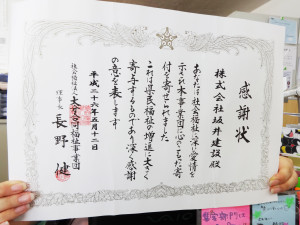 感謝状
株式会社坂井建設殿
あなたは社会福祉に深い愛情を
示され本事業団に心のこもった寄
付を寄せられました
これは県民福祉の増進に大きく
寄与するものであり深く感謝
の意を表します
平成二十六年二月十二日
社会福祉法人大分合同福祉事業団
理事長 長野 健